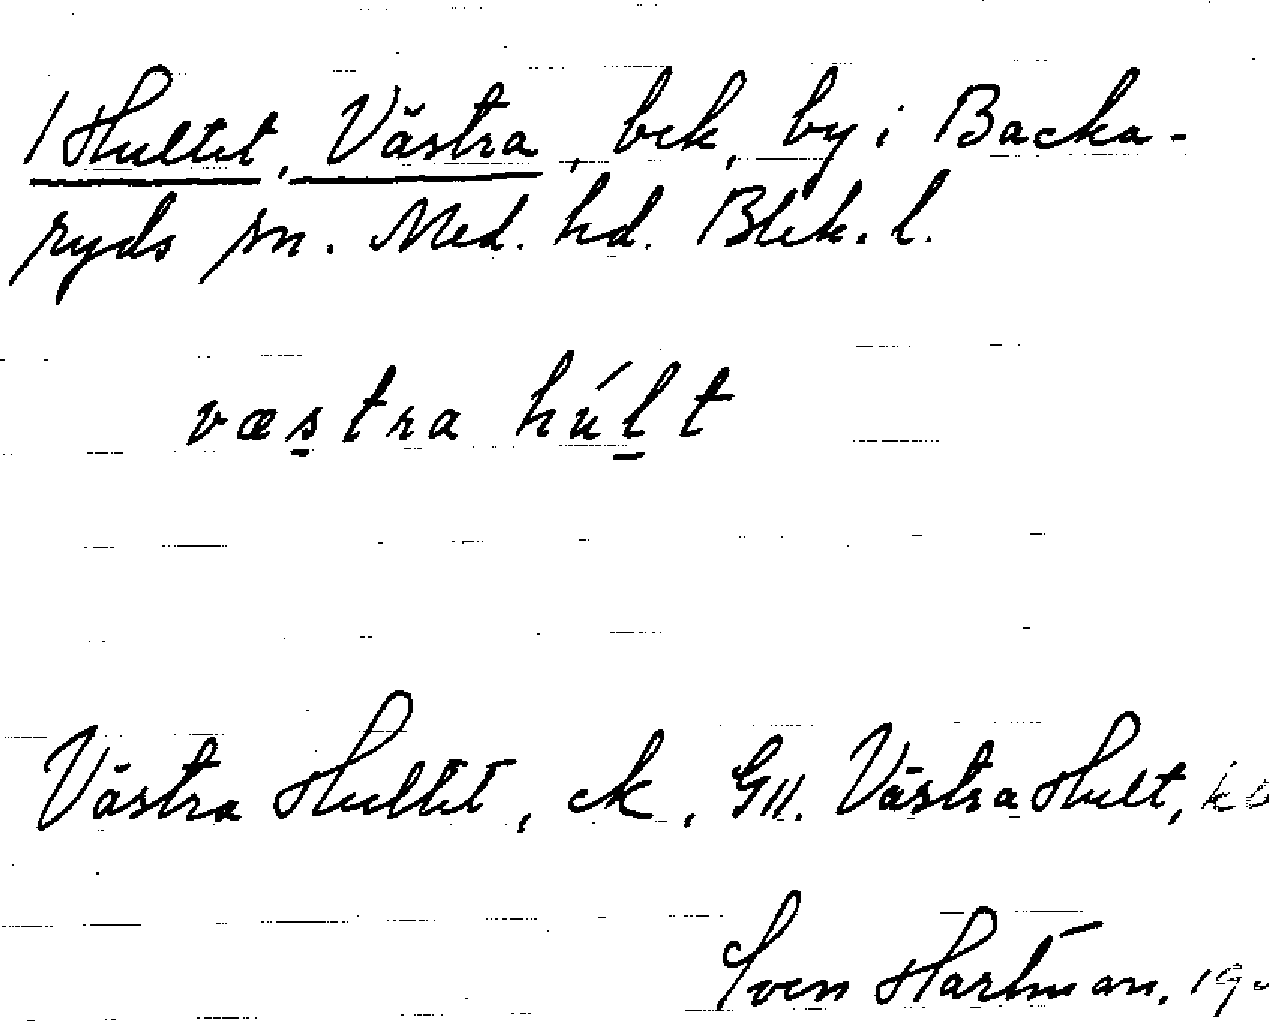 /Hultet, Västra, bek, by i Backa-
ryds sn. Med. hd. Blek. l.
væstra húlt
Västra Hultet, ek, Gll. Västra Hult,
Sven Hartman, 19